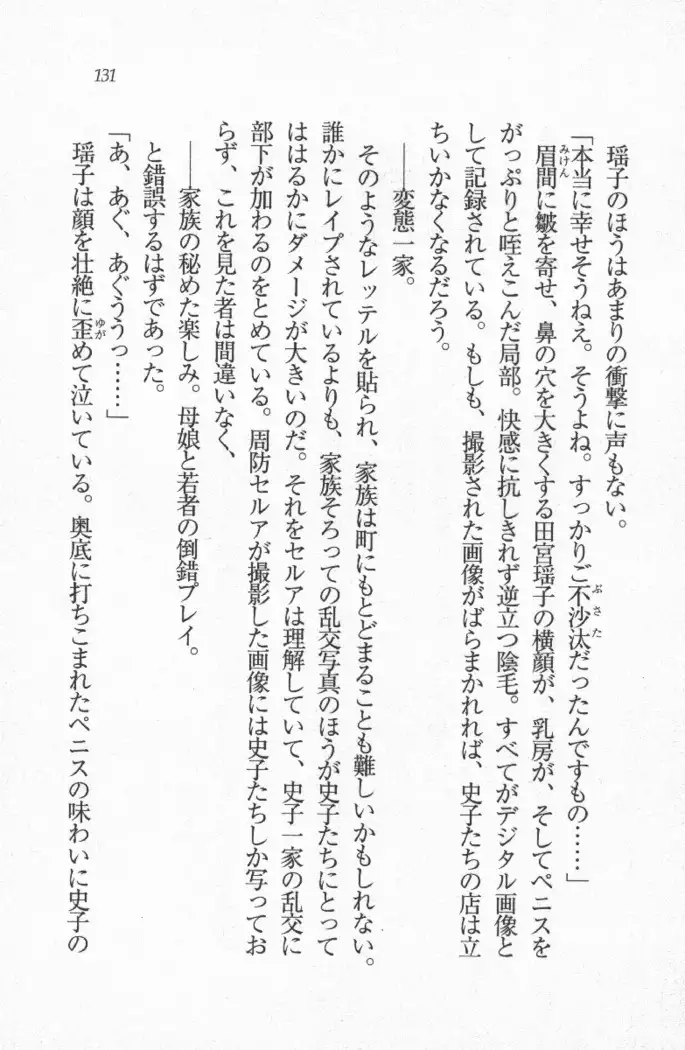 131
瑶子のほうはあまりの衝撃に声もない。
「本当に幸せそうねえ。そうよね。すっかりご不沙汰だったんですもの……」
眉間に皺を寄せ、鼻の穴を大きくする田宮瑶子の横顔が、乳房が、そしてペニスを
がっぷりと咥えこんだ局部。快感に抗しきれず逆立つ陰毛。すべてがデジタル画像と
して記録されている。もしも、撮影された画像がばらまかれれば、史子たちの店は立
ちいかなくなるだろう。
――変態一家。
そのようなレッテルを貼られ、家族は町にもとどまることも難しいかもしれない。
誰かにレイプされているよりも、家族そろっての乱交写真のほうが史子たちにとって
ははるかにダメージが大きいのだ。それをセルアは理解していて、史子一家の乱交に
部下が加わるのをとめている。周防セルアが撮影した画像には史子たちしか写ってお
らず、これを見た者は間違いなく、
――家族の秘めた楽しみ。母娘と若者の倒錯プレイ。
と錯誤するはずであった。
「あ、あぐ、あぐううっ……」
瑶子は顔を壮絶に歪めて泣いている。奥底に打ちこまれたペニスの味わいに史子の